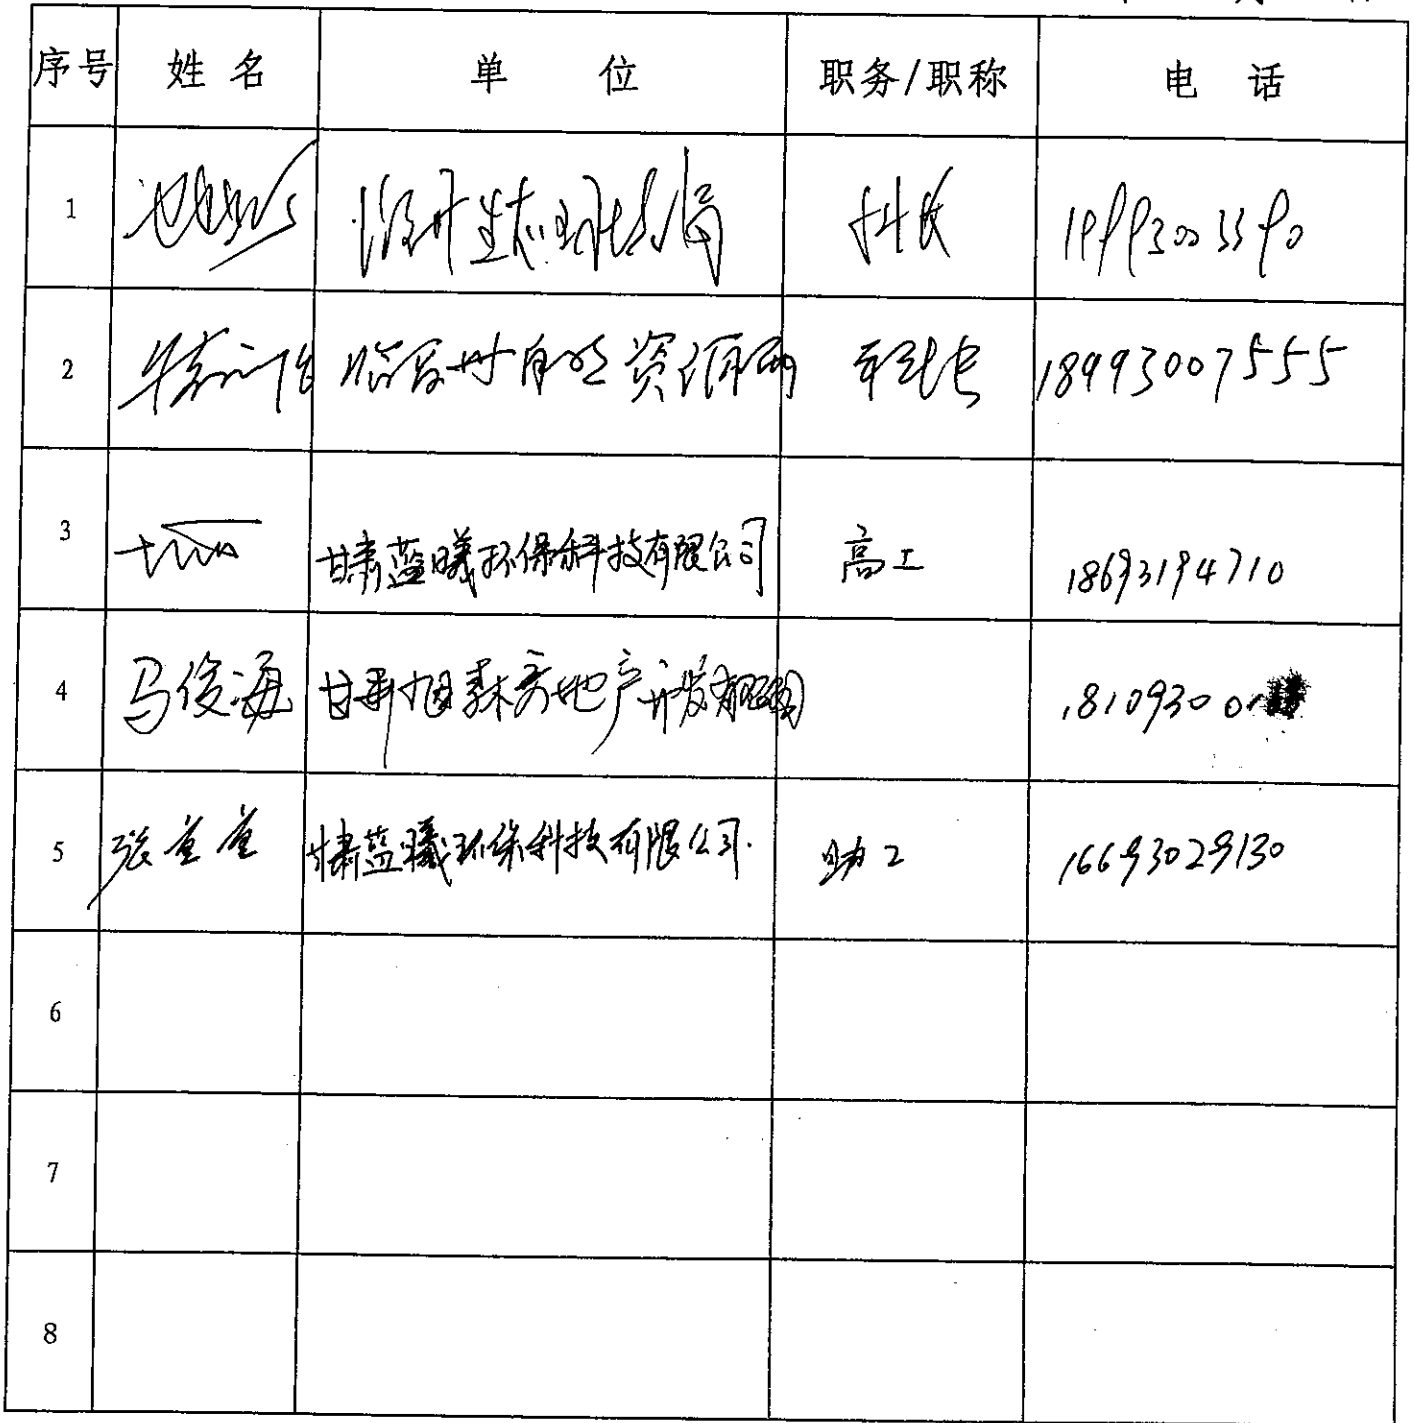 序号 姓名 单位 职务/职称 电话
1 生态环境局 科长
2 临夏州自然资源局 科长 18993007555
3 甘肃蓝曦环保科技有限公司 高工 18693194710
4 马俊海 甘肃旭森房地产开发有限公司 18109300
5 张 甘肃蓝曦环保科技有限公司. 助工 16693029130
6
7
8